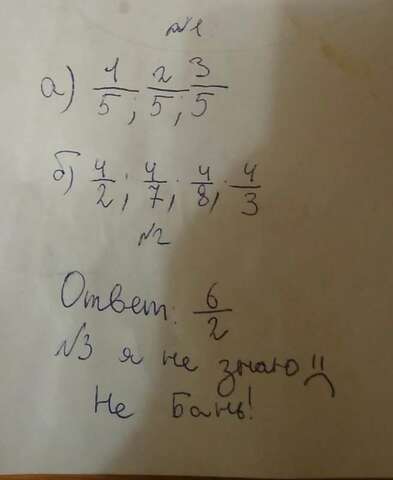 №1
а) 1/5; 2/5; 3/5
б) 4/2; 4/7; 4/8; 4/3
№2
Ответ: 6/2
№3 я не знаю!!
Не Бань!